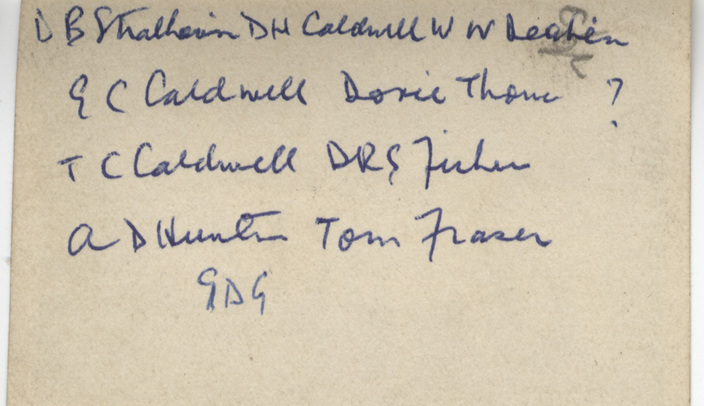 D B Strathairn D H Caldwell W W
G C Caldwell Dorie Thom ?
T C Caldwell D R G Fisher
A D Hunter Tom Fraser
G D G